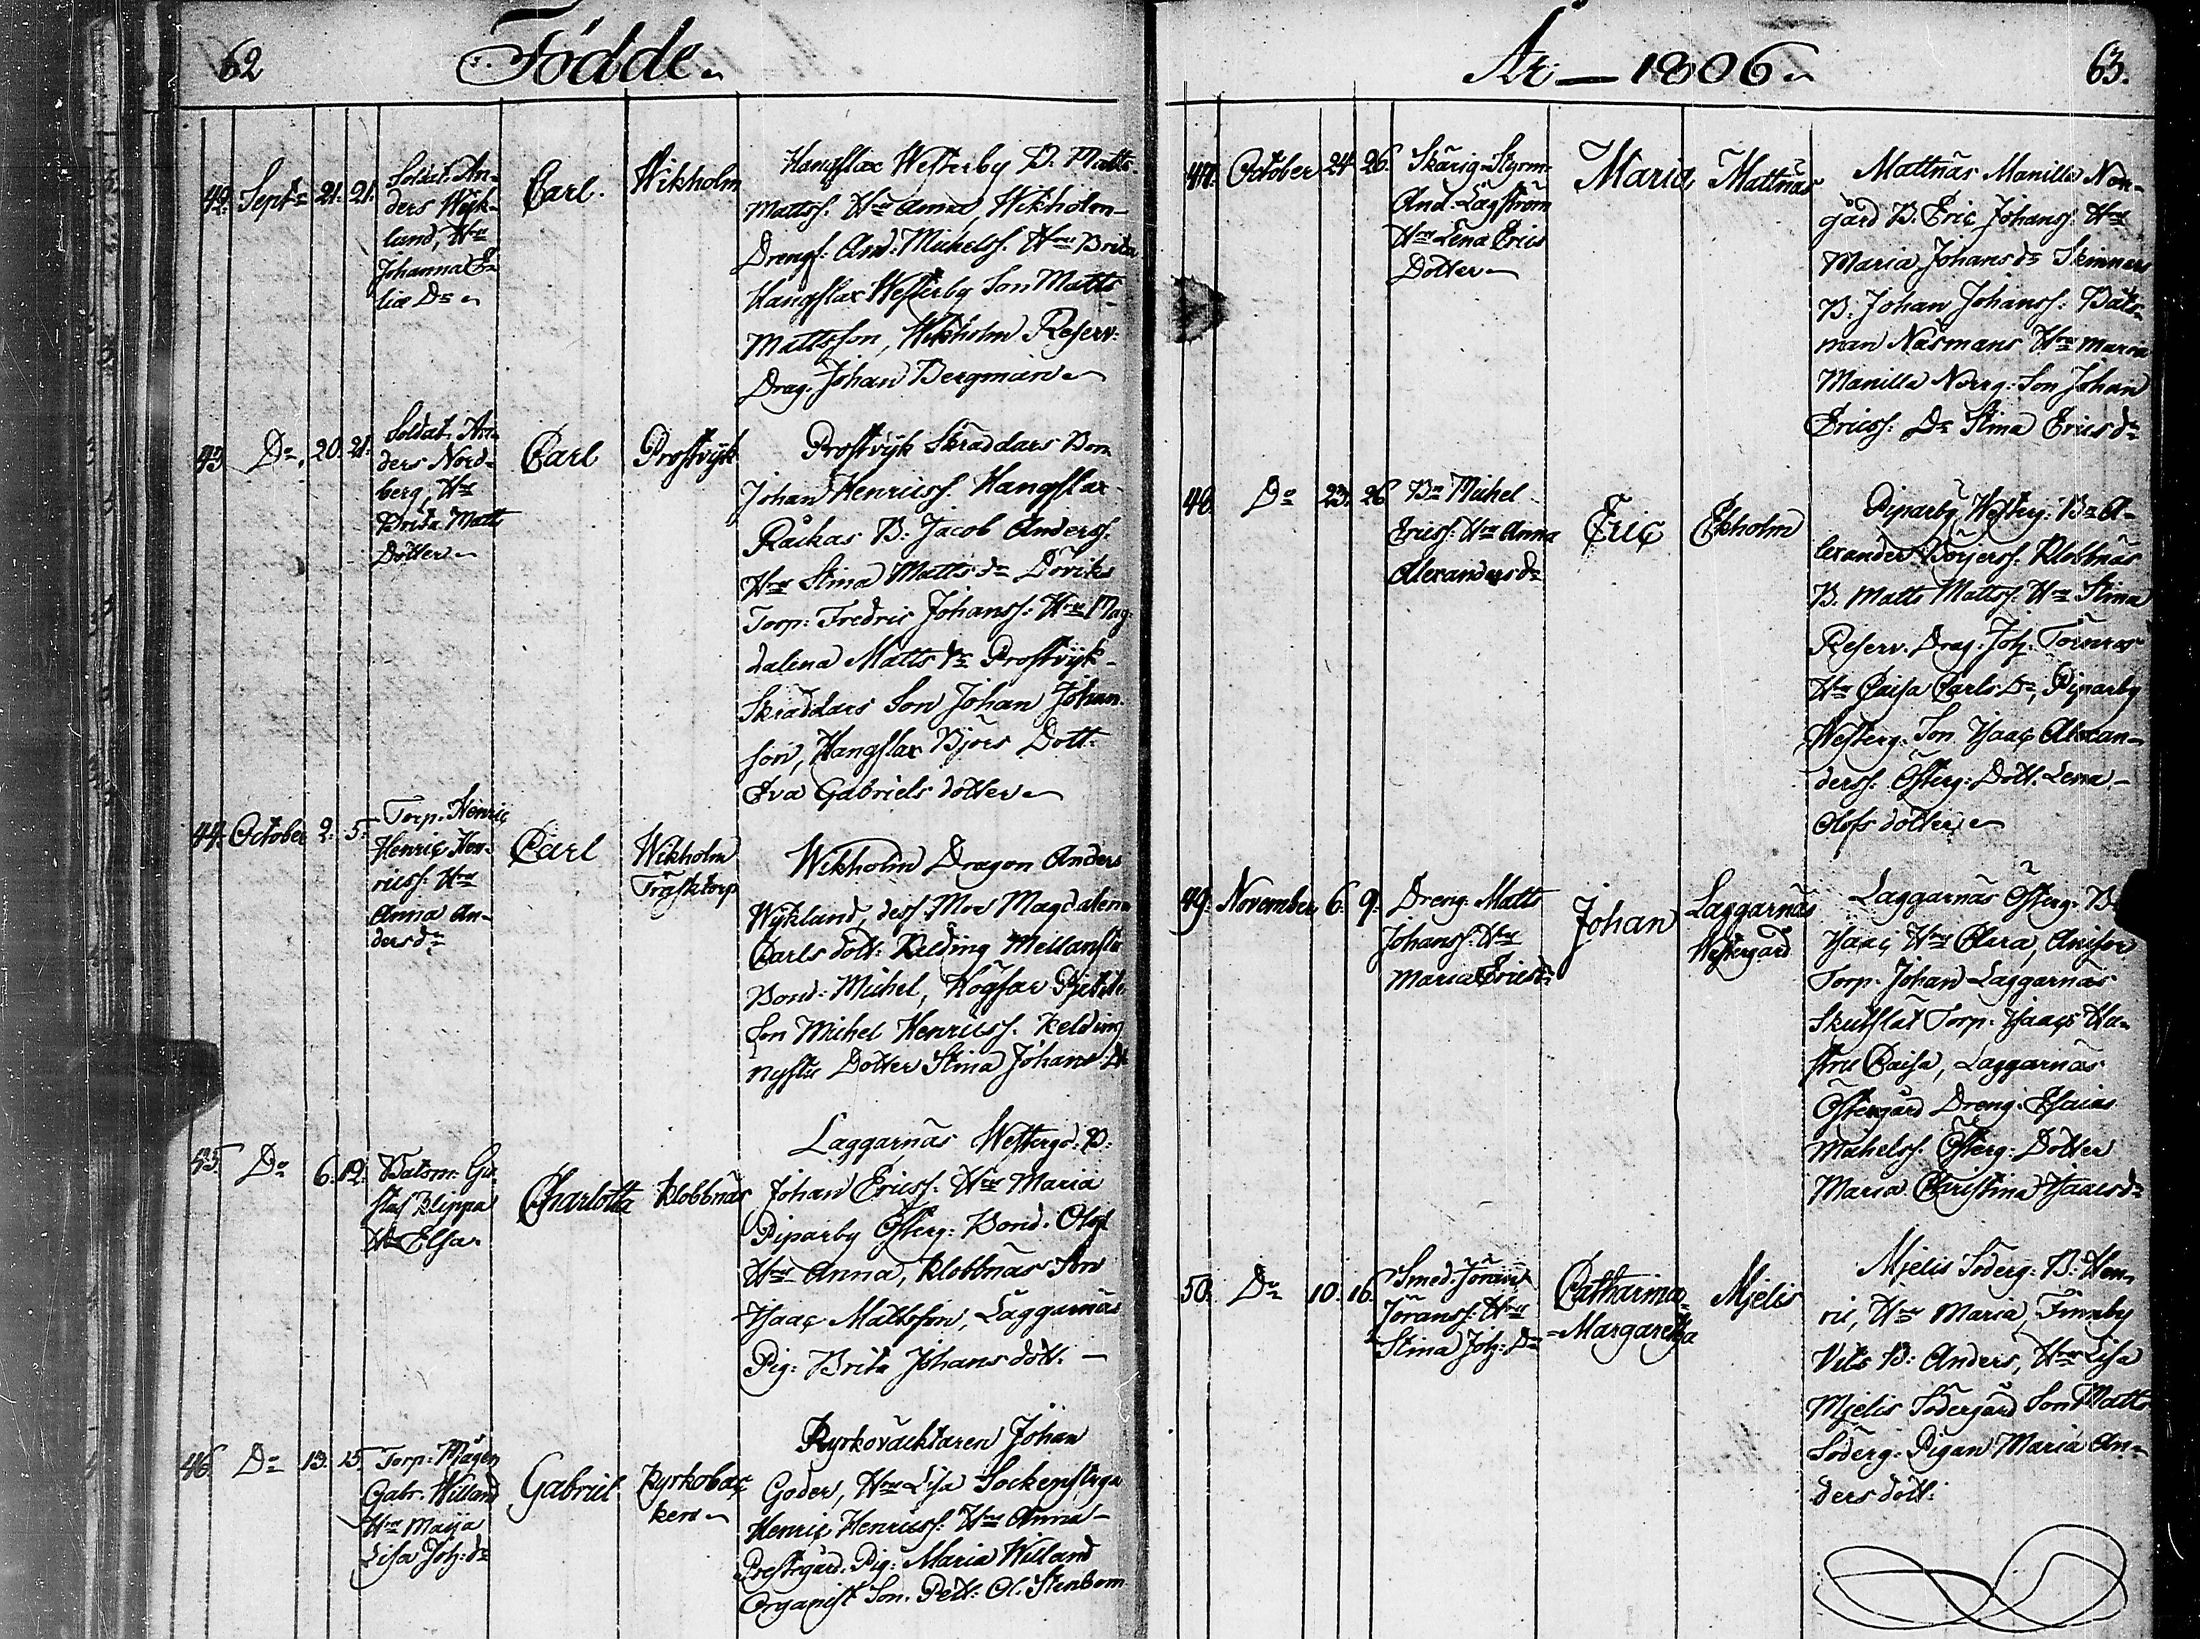 62 Födde
42. Septr 21. 21. Soldat. An-
ders Wijk-
lund, Hru
Johanna E-
liæ Dr
Carl. Wikholm
Hangslax Westerby B. Matts
Mattss. Hru Anna, Wikholm
Drengs. And. Michelss. Hru Brita
Hangslax Westerby Son Matts
Mattsson, Wikholm Reserv.
Drag. Johan Bergman
43. Do. 20. 21. Soldat. An-
ders Nord-
berg, Hru
Brita Matts
Dotter
Carl Prostvijk
Prostvijk Skräddars Bon
Johan Henricss. Hangslax
Råikas B. Jacob Anderss.
Hru Stina Matts dr
Torp. Fredric Johanss. Hru Mag
dalena Matts dr Prostvijk
Skräddars Son Johan Johan
son, Hangslax Björs Dott.
Eva Gabriels dotter
44. October 2. 5. Torp. Henric
Henric Hen-
ricss. Hru
Anna An-
ders dr
Carl Wikholm
Träsktorp
Wikholm Dragon Anders
Wijkland, dess Mor Magdalena
Carls dott. Kelding
Bond. Michel,
Son Michel Henricss. Kelding
Dotter Stina Johans Dr
45. Do 6. 12. Båtsm. Gu-
staf Klippa
Hru Elsa.
Charlotta Klobbnäs
Laggarnäs Westergd. B.
Johan Ericss. Hru Maria
Piparby Österg. Bond. Olof
Hru Anna, Klobbnäs Son
Isaac Mattsson, Laggarnäs
Pig. Brita Johans dott.
46. Do 13. 15. Torp. Mågen
Gabr. Willand
Hru Maija
Lisa Joh. dr
Gabriel Kyrkobac-
ken
Kyrkoväcktaren Johan
Goder, Hru Lisa
Henric Henricss. Hru Anna
Prestgård. Pig. Maria Willand
Organist Son. Pett. Ol. Stenbom
År 1806 63.
47. October 24. 26. Skärig. Styrm.
And. Lagström
Hru Lena Erics
Dotter
Maria Mattnäs
Mattnäs Manilla Norr-
gård B. Eric Johanss. Hru
Maria Johans dr Skinnars
B. Johan Johanss. Båts-
man Näsmans Hru Maria
Manilla Norrg. Son Johan
Ericss. Do Stina Erics dr
48. Do 23. 26 Bn Michel
Ericss. Hru Anna
Alexanders dr
Eric Ekholm
Piparby Westerg. Bn A-
lexander Börjerss. Klobbnäs
B. Matts Mattss. Hru Stina
Reserv. Drag. Joh. Törnros
Hru Caisa Carls Dr, Piparby
Westerg. Son Isaac Alexan-
derss. Österg. Dott. Lena
Olofs dotter
49. November 6. 9. Dreng. Matts
Johanss. Hru
Maria Erics dr
Johan Laggarnäs
Westergård
Laggarnäs Österg. B.
Isaac Hru Clara,
Torp. Johan Laggarnäs
Torp. Isaacs Hu-
stru Caisa, Laggarnäs
Östergård Dreng. Esaias
Michelss. Österg. Dotter
Maria Christina Isaacs dr
50. Do 10. 16. Smed. Jöran
Jöranss. Hru
Stina Joh. Dr
Catharina
Margaretha
Mjelis
Mjelis Söderg. B. Hen-
ric, Hru Maria, Finnby
Nils B. Anders, Hru Lisa
Mjelis Södergård Son Matts
Söderg. Pigan Maria An-
ders dott.